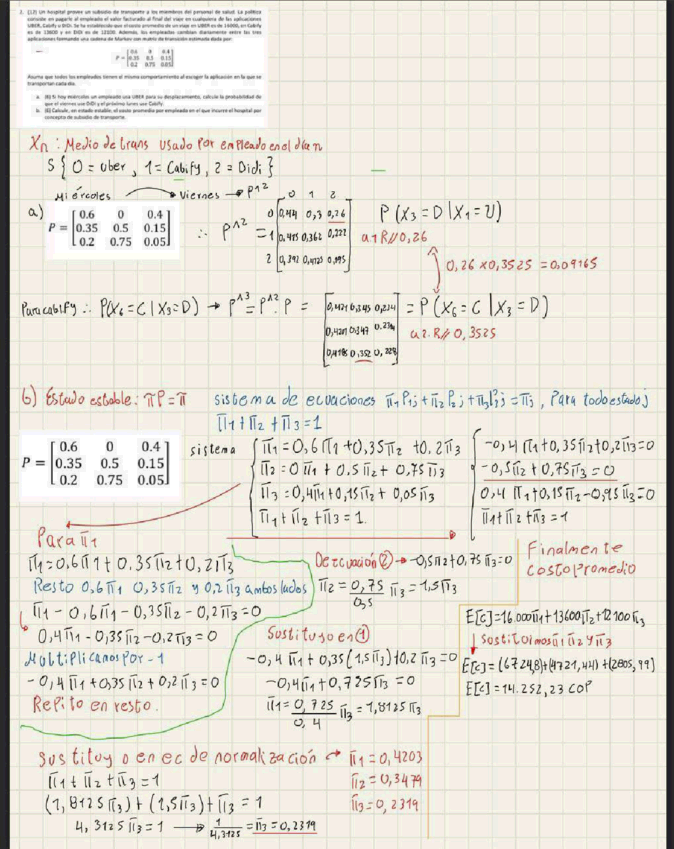 2. (12) Un hospital provee un subsidio de transporte a los miembros del personal de salud. La política
consiste en pagarle al empleado el valor facturado al final del viaje en cualquiera de las aplicaciones
UBER, Cabify o DiDi. Se ha establecido que el costo promedio de un viaje en UBER es de 16000, en Cabify
es de 13600 y en DiDi es de 12100. Además, los empleados cambian diariamente entre las tres
aplicaciones formando una cadena de Markov con matriz de transición estimada dada por:
P = [0.6 0 0.4
0.35 0.5 0.15
0.2 0.75 0.05]
Asuma que todos los empleados tienen el mismo comportamiento al escoger la aplicación en la que se
transportan cada día.
a. (6) Si hoy miércoles un empleado usa UBER para su desplazamiento, calcule la probabilidad de
que el viernes use DiDi y el próximo lunes use Cabify.
b. (6) Calcule, en estado estable, el costo promedio por empleado en el que incurre el hospital por
concepto de subsidio de transporte.
Xn : Medio de trans usado por empleado en el día n
S { 0 = Uber , 1 = Cabify , 2 = Didi }
Miércoles → Viernes → P^2
a) P = [0.6 0 0.4
0.35 0.5 0.15
0.2 0.75 0.05]
∴ P^2 =
0 1 2
0 0,44 0,3 0,26
1 0,415 0,362 0,222
2 0,392 0,4125 0,195
P(X3 = D | X1 = U)
a.1 R// 0,26
0,26 x 0,3525 = 0,09165
Para cabify ∴ P(X6 = C | X3 = D) → P^3 = P^2 · P =
[0,421 0,345 0,234
0,4201 0,347 0.234
0,4195 0,352 0,228]
= P(X6 = C | X3 = D)
a.2. R// 0,3525
b) Estado estable: πP = π sistema de ecuaciones π1P1j + π2P2j + π3P3j = πj , Para todo estado j
π1 + π2 + π3 = 1
P = [0.6 0 0.4
0.35 0.5 0.15
0.2 0.75 0.05]
sistema
π1 = 0,6π1 + 0,35π2 + 0.2π3
π2 = 0π1 + 0,5π2 + 0,75π3
π3 = 0,4π1 + 0,15π2 + 0,05π3
π1 + π2 + π3 = 1.
-0,4π1 + 0,35π2 + 0,2π3 = 0
-0,5π2 + 0,75π3 = 0
0,4π1 + 0,15π2 - 0,95π3 = 0
π1 + π2 + π3 = 1
Para π1
π1 = 0,6π1 + 0.35π2 + 0,2π3
Resto 0,6π1 0,35π2 y 0,2π3 ambos lados
π1 - 0,6π1 - 0,35π2 - 0,2π3 = 0
0,4π1 - 0,35π2 - 0,2π3 = 0
Multiplicamos por -1
-0,4π1 + 0,35π2 + 0,2π3 = 0
Repito en resto.
De ecuación ② → -0,5π2 + 0,75π3 = 0
π2 = 0,75/0,5 π3 = 1,5π3
Sustituyo en ①
-0,4π1 + 0,35(1,5π3) + 0,2π3 = 0
-0,4π1 + 0,725π3 = 0
π1 = 0,725/0,4 π3 = 1,8125π3
Finalmente
costo promedio
E[c] = 16.000π1 + 13600π2 + 12100π3
Sostituimos π1 π2 y π3
E[c] = (6724,8) + (4721,44) + (2805,99)
E[c] = 14.252,23 COP
Sustituyo en ec de normalización → π1 = 0,4203
π2 = 0,3479
π3 = 0,2319
π1 + π2 + π3 = 1
(1,8125π3) + (1,5π3) + π3 = 1
4,3125π3 = 1 → 1/4,3125 = π3 = 0,2319